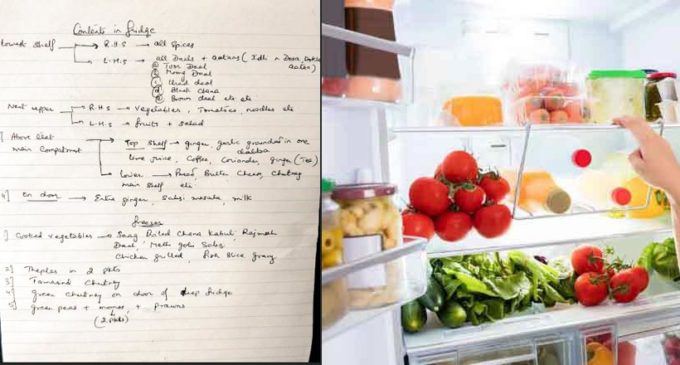 Contents in fridge
Lowest Shelf → R.H.S → all Spices
→ L.H.S → all Dals + (Idli n Dosa
Toor Daal
Moong Daal
Urad daal
Black Chana
Brown daal etc etc
Next upper → R.H.S → vegetables, Tomatoes, noodles etc
L.H.S → fruits + salad
Above that
main Compartment
Top Shelf → ginger, garlic grounded in one
dabba
lime juice, Coffee, Coriander, ginger (Tea)
Lower → Butter Cheese, Chutney
main shelf etc
4] On door → Extra ginger, Sabzi masala, milk
freezer
] Cooked vegetables → Saag Chana Kabuli Rajmah
Daal, Methi Sabzi
Chicken grilled, gravy
2] Theplas in 2 pkts
3] Tamarind Chutney
4] green Chutney on door of deep fridge
5] green peas + + Prawns
(2 pkts)